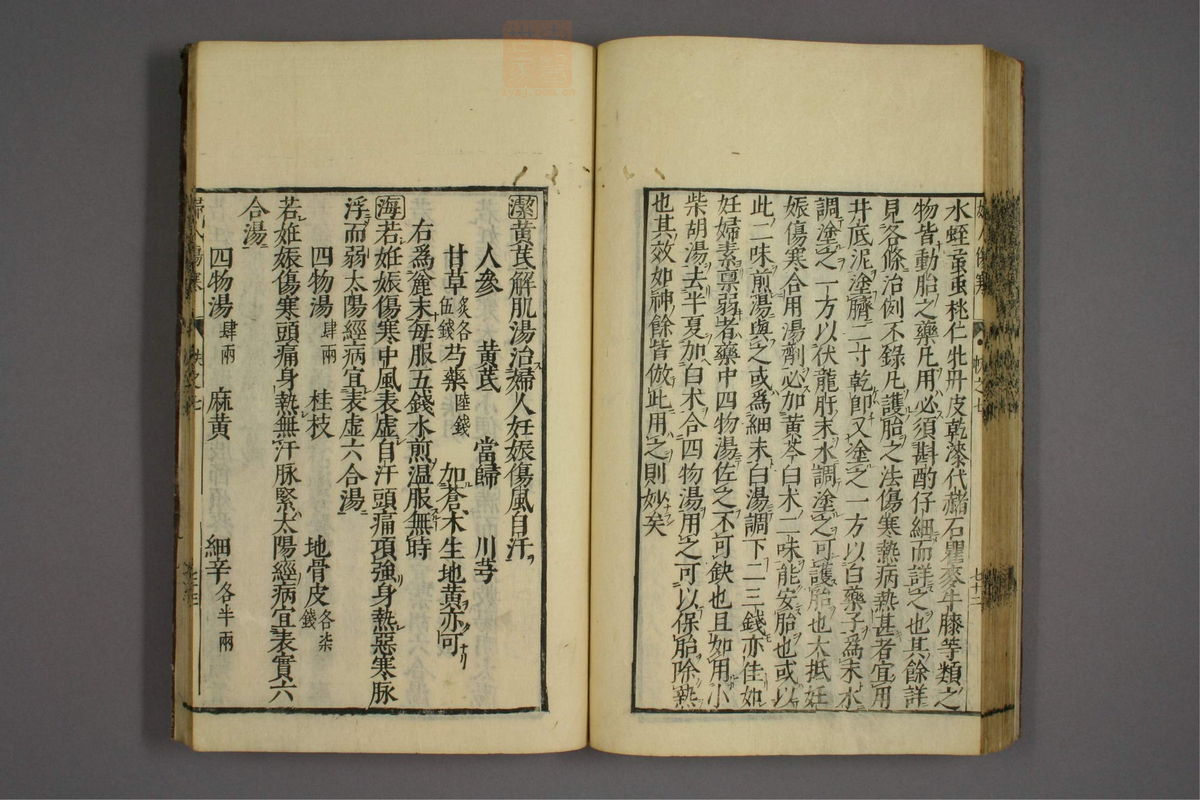 水蛭䖟虫桃仁牡丹皮乾漆代赭石瞿麥牛膝等類之
物皆動胎之藥凡用必須斟酌仔細而詳之也其餘詳
見各條治例不錄凡護胎之法傷寒熱病熱甚者宜用
井底泥塗臍二寸乾即又塗之一方以白藥子爲末水
調塗之一方以伏龍肝末水調塗之可護胎也大抵妊
娠傷寒合用湯劑必加黃芩白朮二味能安胎也或以
此二味煎湯與之或爲細末白湯調下二三錢亦佳如
妊婦素禀弱者藥中四物湯佐之不可缺也且如用小
柴胡湯去半夏加白朮合四物湯用之可以保胎除熱
也其效如神餘皆倣此用之則妙矣
潔黃芪解肌湯治婦人妊娠傷風自汗
人參 黃芪 當歸 川芎
甘草炙各伍錢 芍藥陸錢 加蒼朮生地黃亦可
右爲麄末每服五錢水煎溫服無時
海若妊娠傷寒中風表虛自汗頭痛項強身熱惡寒脉
浮而弱太陽經病宜表虛六合湯
四物湯肆兩 桂枝 地骨皮各柒錢
若妊娠傷寒頭痛身熱無汗脉緊太陽經病宜表實六
合湯
四物湯肆兩 麻黃 細辛各半兩
婦人傷寒 帙之七